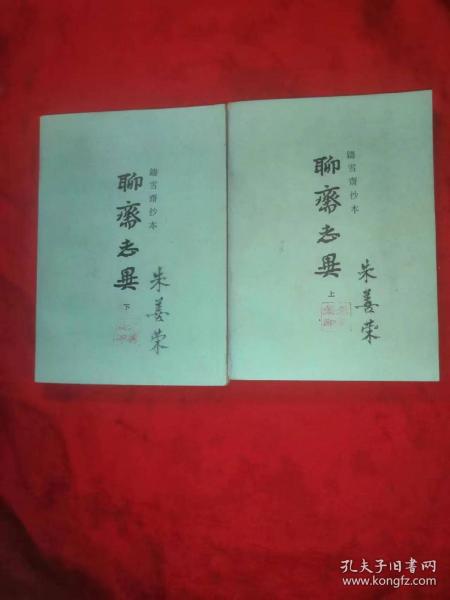 鑄雪齋抄本
聊齋志異
下
朱善荣
鑄雪齋抄本
聊齋志異
上
朱善荣
孔夫子旧书网
www.kongfz.com